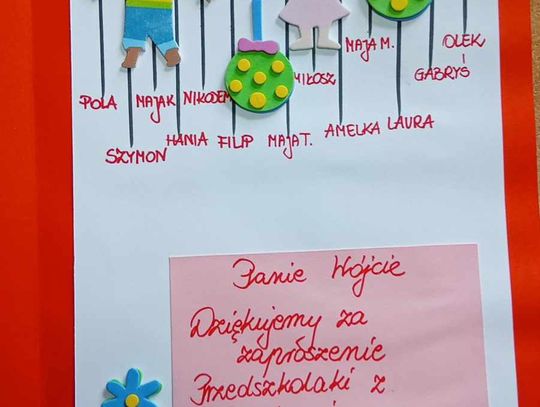 OLEK
MAJA M.
GABRYŚ
MIŁOSZ
POLA MAJA K NIKODEM
AMELKA LAURA
HANIA FILIP MAJA T.
SZYMON
Panie Wójcie
Dziękujemy za
zaproszenie
Przedszkolaki z